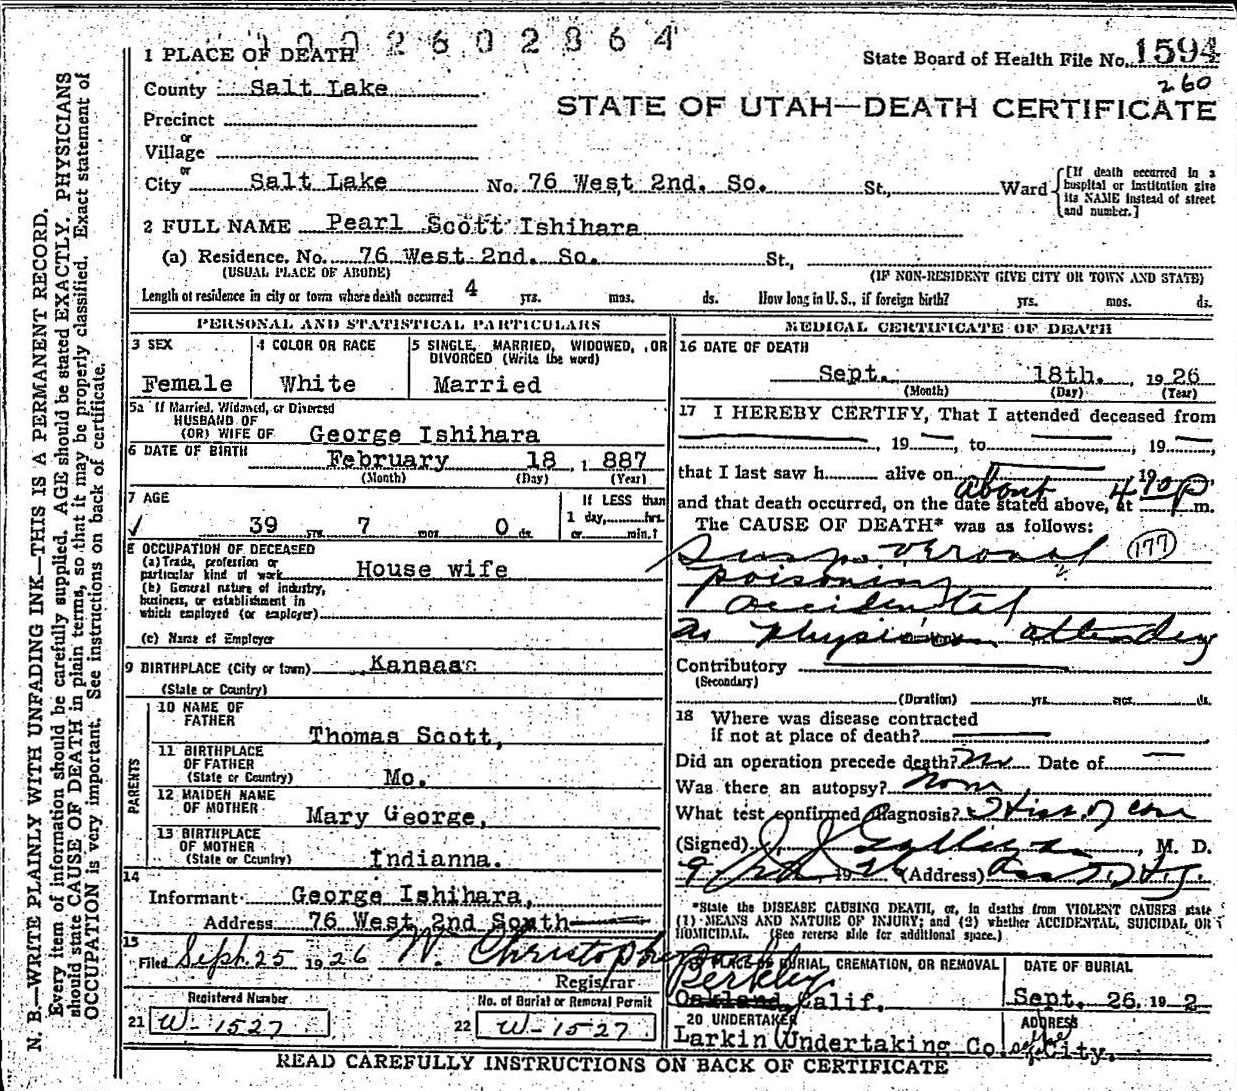 0002602864
1 PLACE OF DEATH
State Board of Health File No. 1594
260
County Salt Lake
STATE OF UTAH—DEATH CERTIFICATE
Precinct
or
Village
or
City Salt Lake No. 76 West 2nd. So. St., Ward [If death occurred in a hospital or institution give its NAME instead of street and number.]
2 FULL NAME Pearl Scott Ishihara
(a) Residence. No. 76 West 2nd. So. St.,
(USUAL PLACE OF ABODE) (IF NON-RESIDENT GIVE CITY OR TOWN AND STATE)
Length of residence in city or town where death occurred 4 yrs. mos. ds. How long in U. S., if foreign birth? yrs. mos. ds.
PERSONAL AND STATISTICAL PARTICULARS
3 SEX
Female
4 COLOR OR RACE
White
5 SINGLE, MARRIED, WIDOWED, OR DIVORCED (Write the word)
Married
5a If Married, Widowed, or Divorced
HUSBAND OF
(OR) WIFE OF George Ishihara
6 DATE OF BIRTH February 18, 1887
(Month) (Day) (Year)
7 AGE
39 yrs. 7 mos. 0 ds.
If LESS than
1 day, hrs.
or min.?
8 OCCUPATION OF DECEASED
(a) Trade, profession or
particular kind of work House wife
(b) General nature of industry,
business, or establishment in
which employed (or employer)
(c) Name of Employer
9 BIRTHPLACE (City or town) Kansas
(State or Country)
PARENTS
10 NAME OF
FATHER
Thomas Scott,
11 BIRTHPLACE
OF FATHER
(State or Country) Mo.
12 MAIDEN NAME
OF MOTHER
Mary George,
13 BIRTHPLACE
OF MOTHER
(State or Country) Indianna.
14
Informant George Ishihara,
Address 76 West 2nd South
15
Filed Sept. 25 1926 W. Christopherson
Registrar
Registered Number
21 W-1527
No. of Burial or Removal Permit
22 W-1527
MEDICAL CERTIFICATE OF DEATH
16 DATE OF DEATH
Sept. 18th. , 1926
(Month) (Day) (Year)
17 I HEREBY CERTIFY, That I attended deceased from
, 19 , to , 19 ,
that I last saw h alive on 19 ,
and that death occurred, on the date stated above, at about 4 10 p m.
The CAUSE OF DEATH* was as follows:
Veronal (177)
poisoning
accidental
no physician attending
Contributory
(Secondary)
(Duration) yrs. mos. ds.
18 Where was disease contracted
if not at place of death?
Did an operation precede death? No Date of
Was there an autopsy? None
What test confirmed diagnosis?
(Signed) , M. D.
, 19 (Address)
*State the DISEASE CAUSING DEATH, or, in deaths from VIOLENT CAUSES state
(1) MEANS AND NATURE OF INJURY; and (2) whether ACCIDENTAL, SUICIDAL OR
HOMICIDAL. (See reverse side for additional space.)
19 PLACE OF BURIAL, CREMATION, OR REMOVAL
Berkley
Oakland, Calif.
DATE OF BURIAL
Sept. 26, 192
20 UNDERTAKER
Larkin Undertaking Co.
ADDRESS
City.
READ CAREFULLY INSTRUCTIONS ON BACK OF CERTIFICATE
N. B.—WRITE PLAINLY WITH UNFADING INK—THIS IS A PERMANENT RECORD.
Every item of information should be carefully supplied. AGE should be stated EXACTLY. PHYSICIANS
should state CAUSE OF DEATH in plain terms, so that it may be properly classified. Exact statement of
OCCUPATION is very important. See instructions on back of certificate.